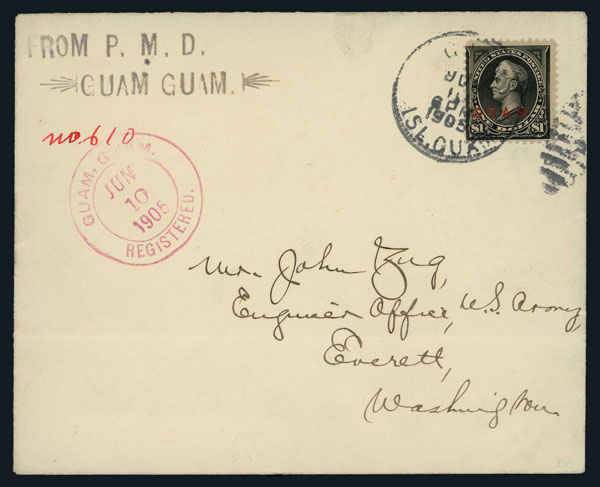 FROM P. M. D.
GUAM GUAM.
no. 610
GUAM, GUAM.
JUN
10
1905
REGISTERED.
1905
ISL. GUAM
UNITED STATES
GUAM
$1 DOLLAR $1
Mr. John Zug,
Engineer Office, U.S. Army
Everett,
Washington.